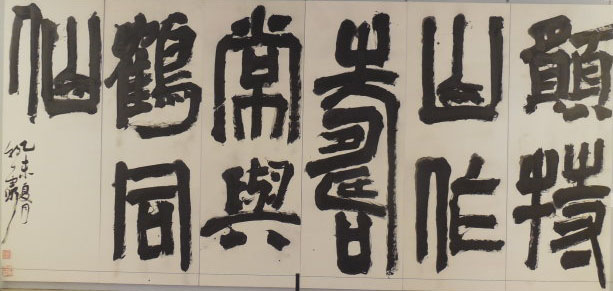 願持
山作
壽
常與
鶴同
仙
乙未夏月